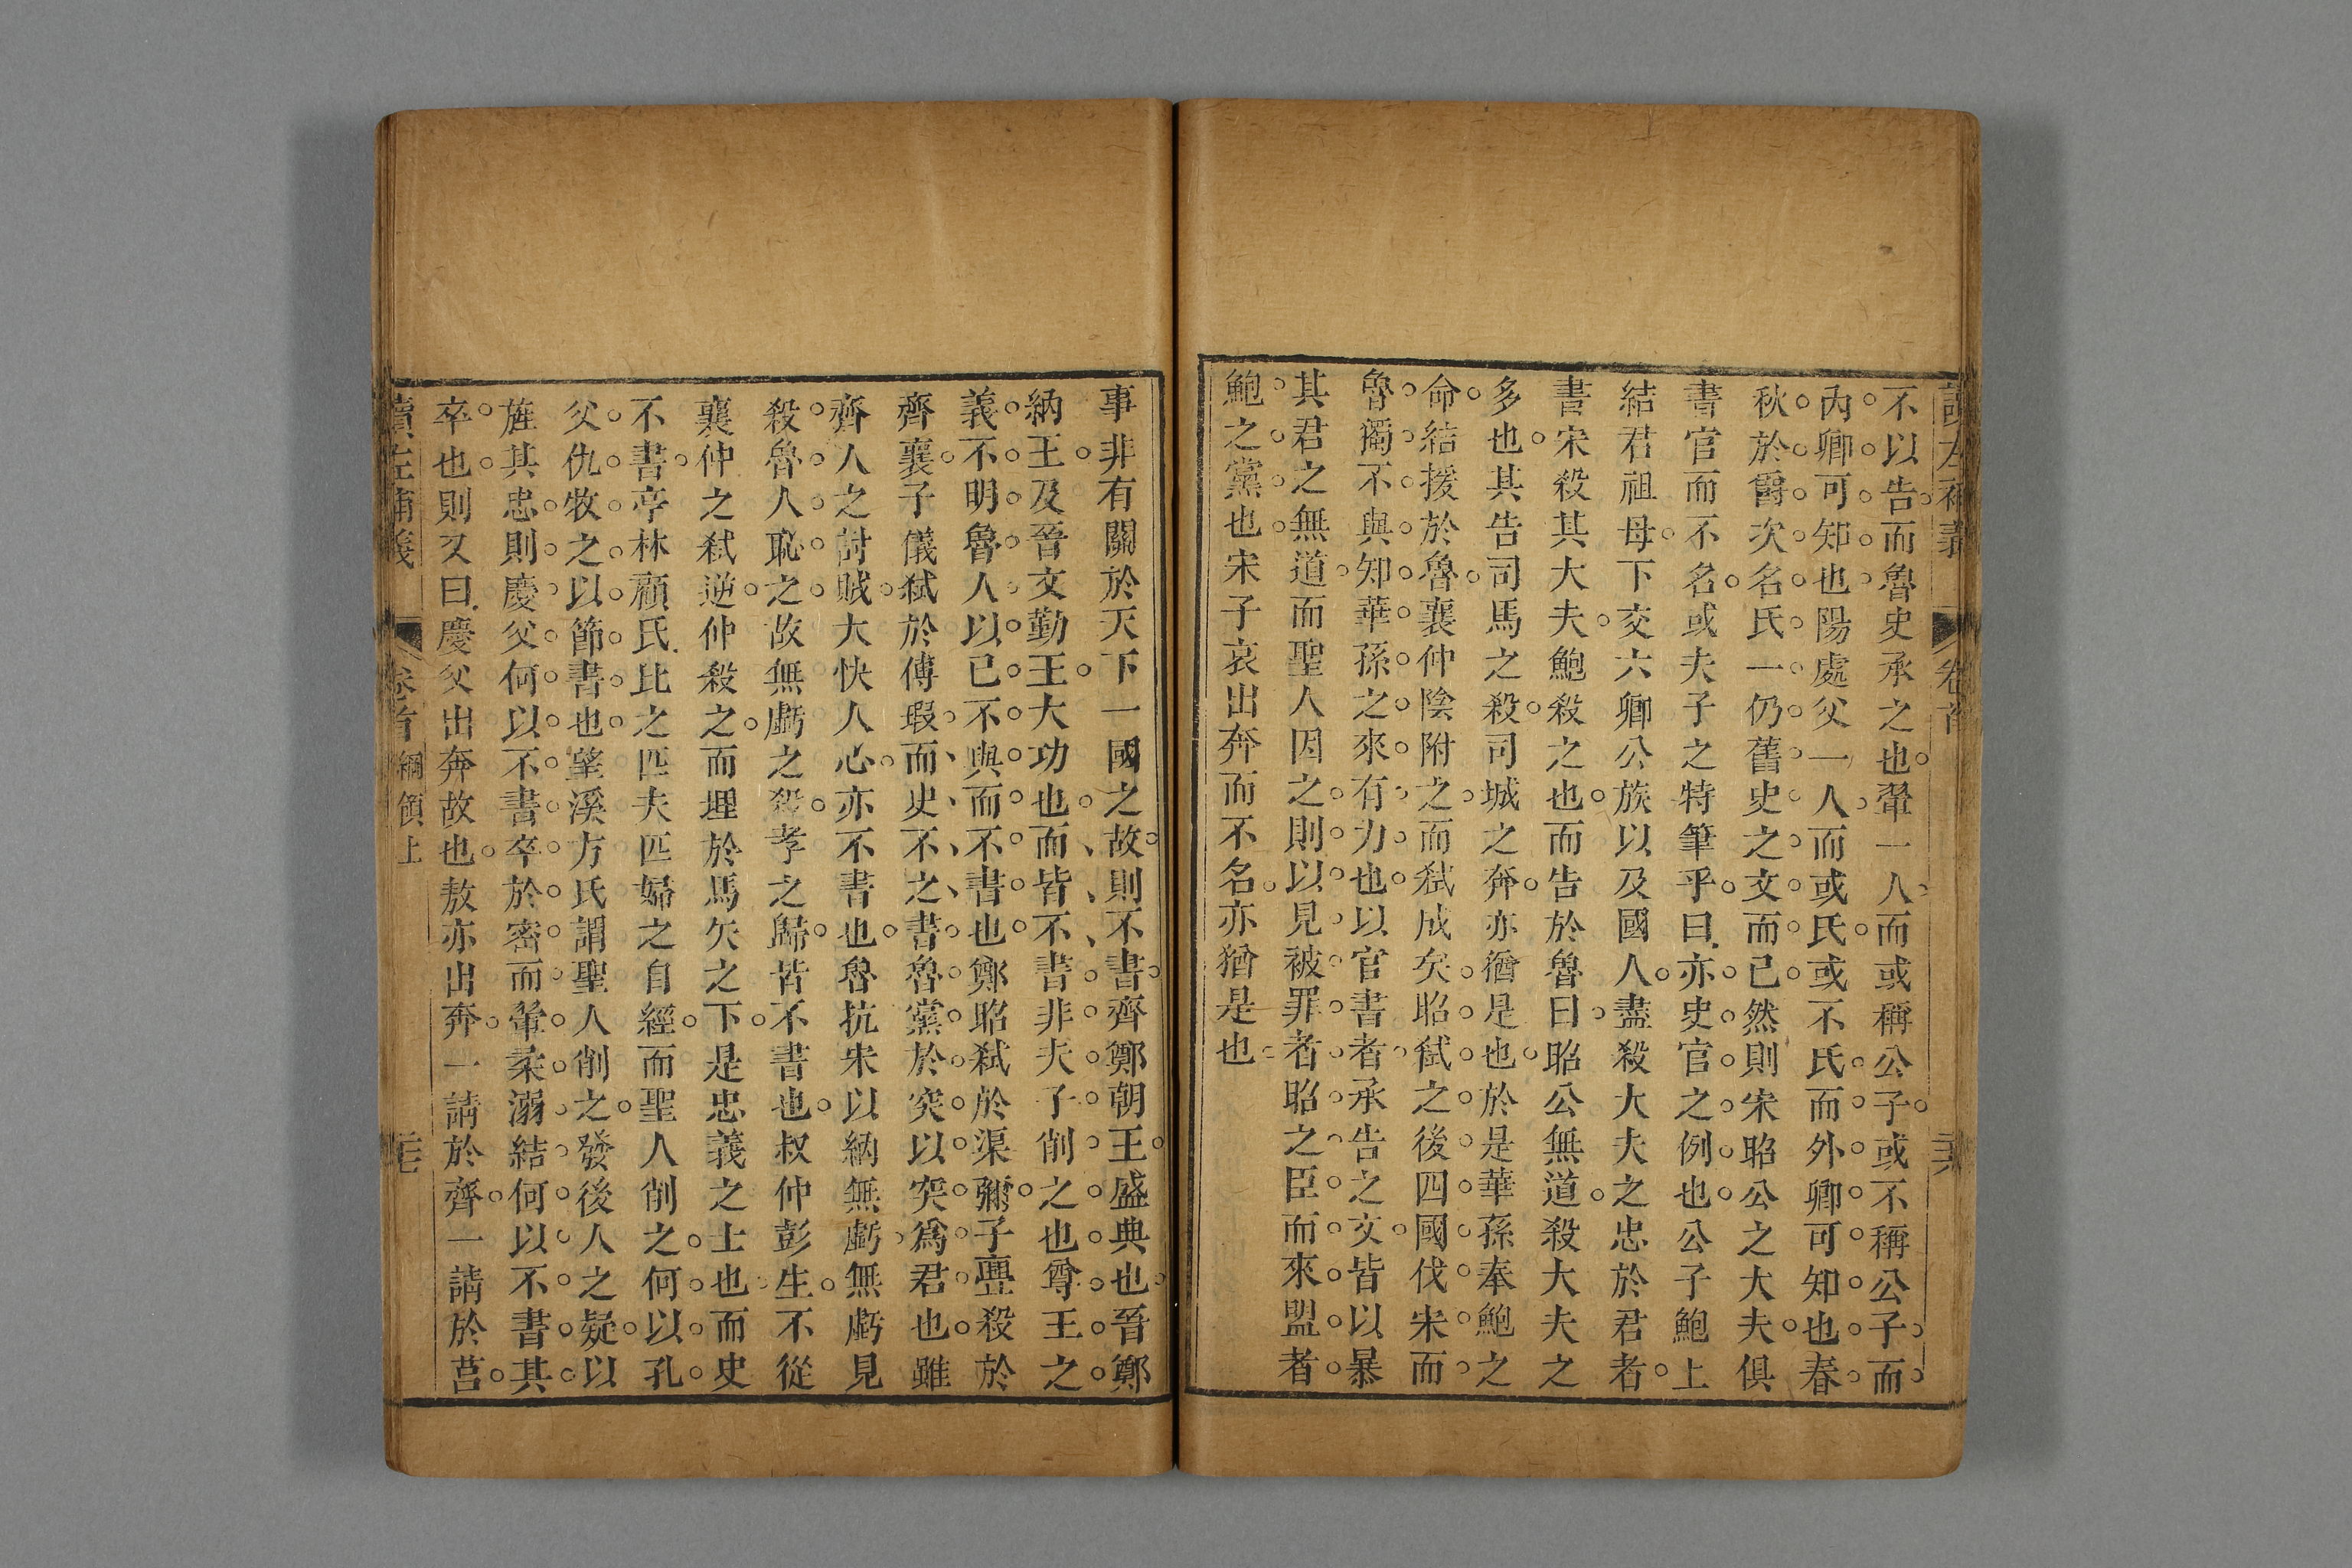 不以告而魯史承之也翬一人而或稱公子或不稱公子而
內卿可知也陽處父一人而或氏或不氏而外卿可知也春
秋於爵次名氏一仍舊史之文而已然則宋昭公之大夫俱
書官而不名或夫子之特筆乎曰亦史官之例也公子鮑上
結君祖母下交六卿公族以及國人盡殺大夫之忠於君者
書宋殺其大夫鮑殺之也而告於魯曰昭公無道殺大夫之
多也其告司馬之殺司城之奔亦猶是也於是華孫奉鮑之
命結援於魯襄仲陰附之而弒成矣昭弒之後四國伐宋而
魯獨不與知華孫之來有力也以官書者承告之文皆以暴
其君之無道而聖人因之則以見被罪者昭之臣而來盟者
鮑之黨也宋子哀出奔而不名亦猶是也
事非有關於天下一國之故則不書齊鄭朝王盛典也晉鄭
納王及晉文勤王大功也而皆不書非夫子削之也尊王之
義不明魯人以已不與而不書也鄭昭弒於渠彌子亹殺於
齊襄子儀弒於傅瑕而史不之書魯黨於突以突爲君也雖
齊人之討賊大快人心亦不書也魯抗宋以納無虧無虧見
殺魯人恥之故無虧之殺孝之歸皆不書也叔仲彭生不從
襄仲之弒逆仲殺之而埋於馬矢之下是忠義之士也而史
不書亭林顧氏比之匹夫匹婦之自經而聖人削之何以孔
父仇牧之以節書也望溪方氏謂聖人削之發後人之疑以
旌其忠則慶父何以不書卒於密而翬柔溺結何以不書其
卒也則又曰慶父出奔故也敖亦出奔一請於齊一請於莒
讀左補義 卷首 綱領上 三七